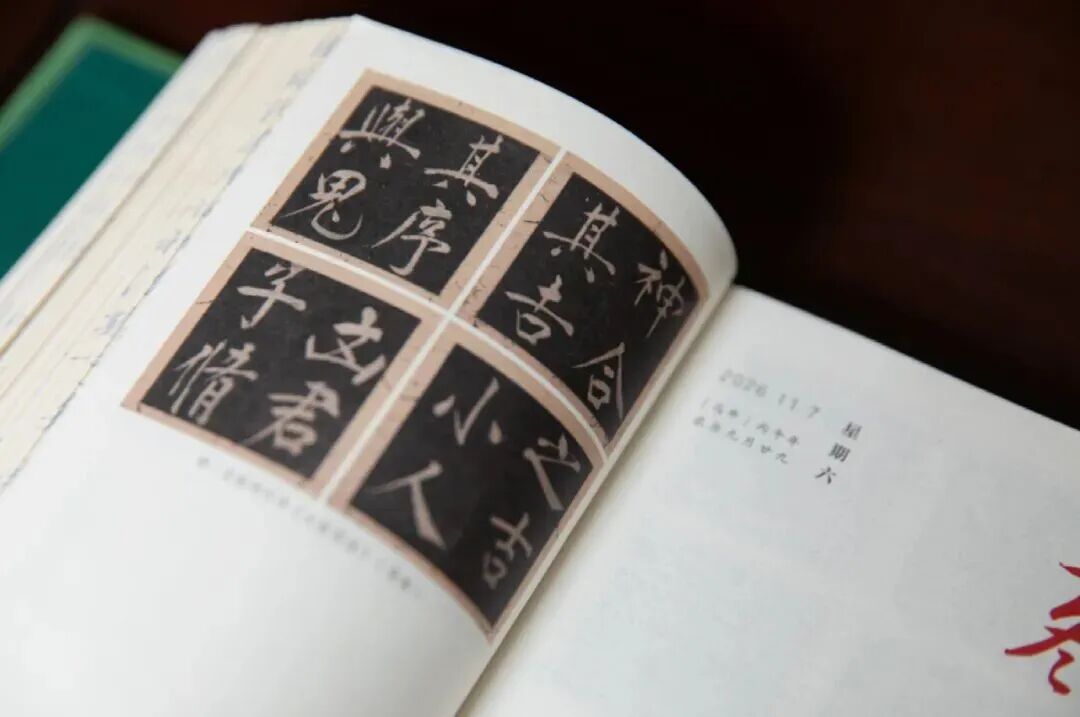 其序
與鬼
神合
其吉
凶君
子脩
之吉
小人
2026 11 7
星期六
丙午年
九月廿九